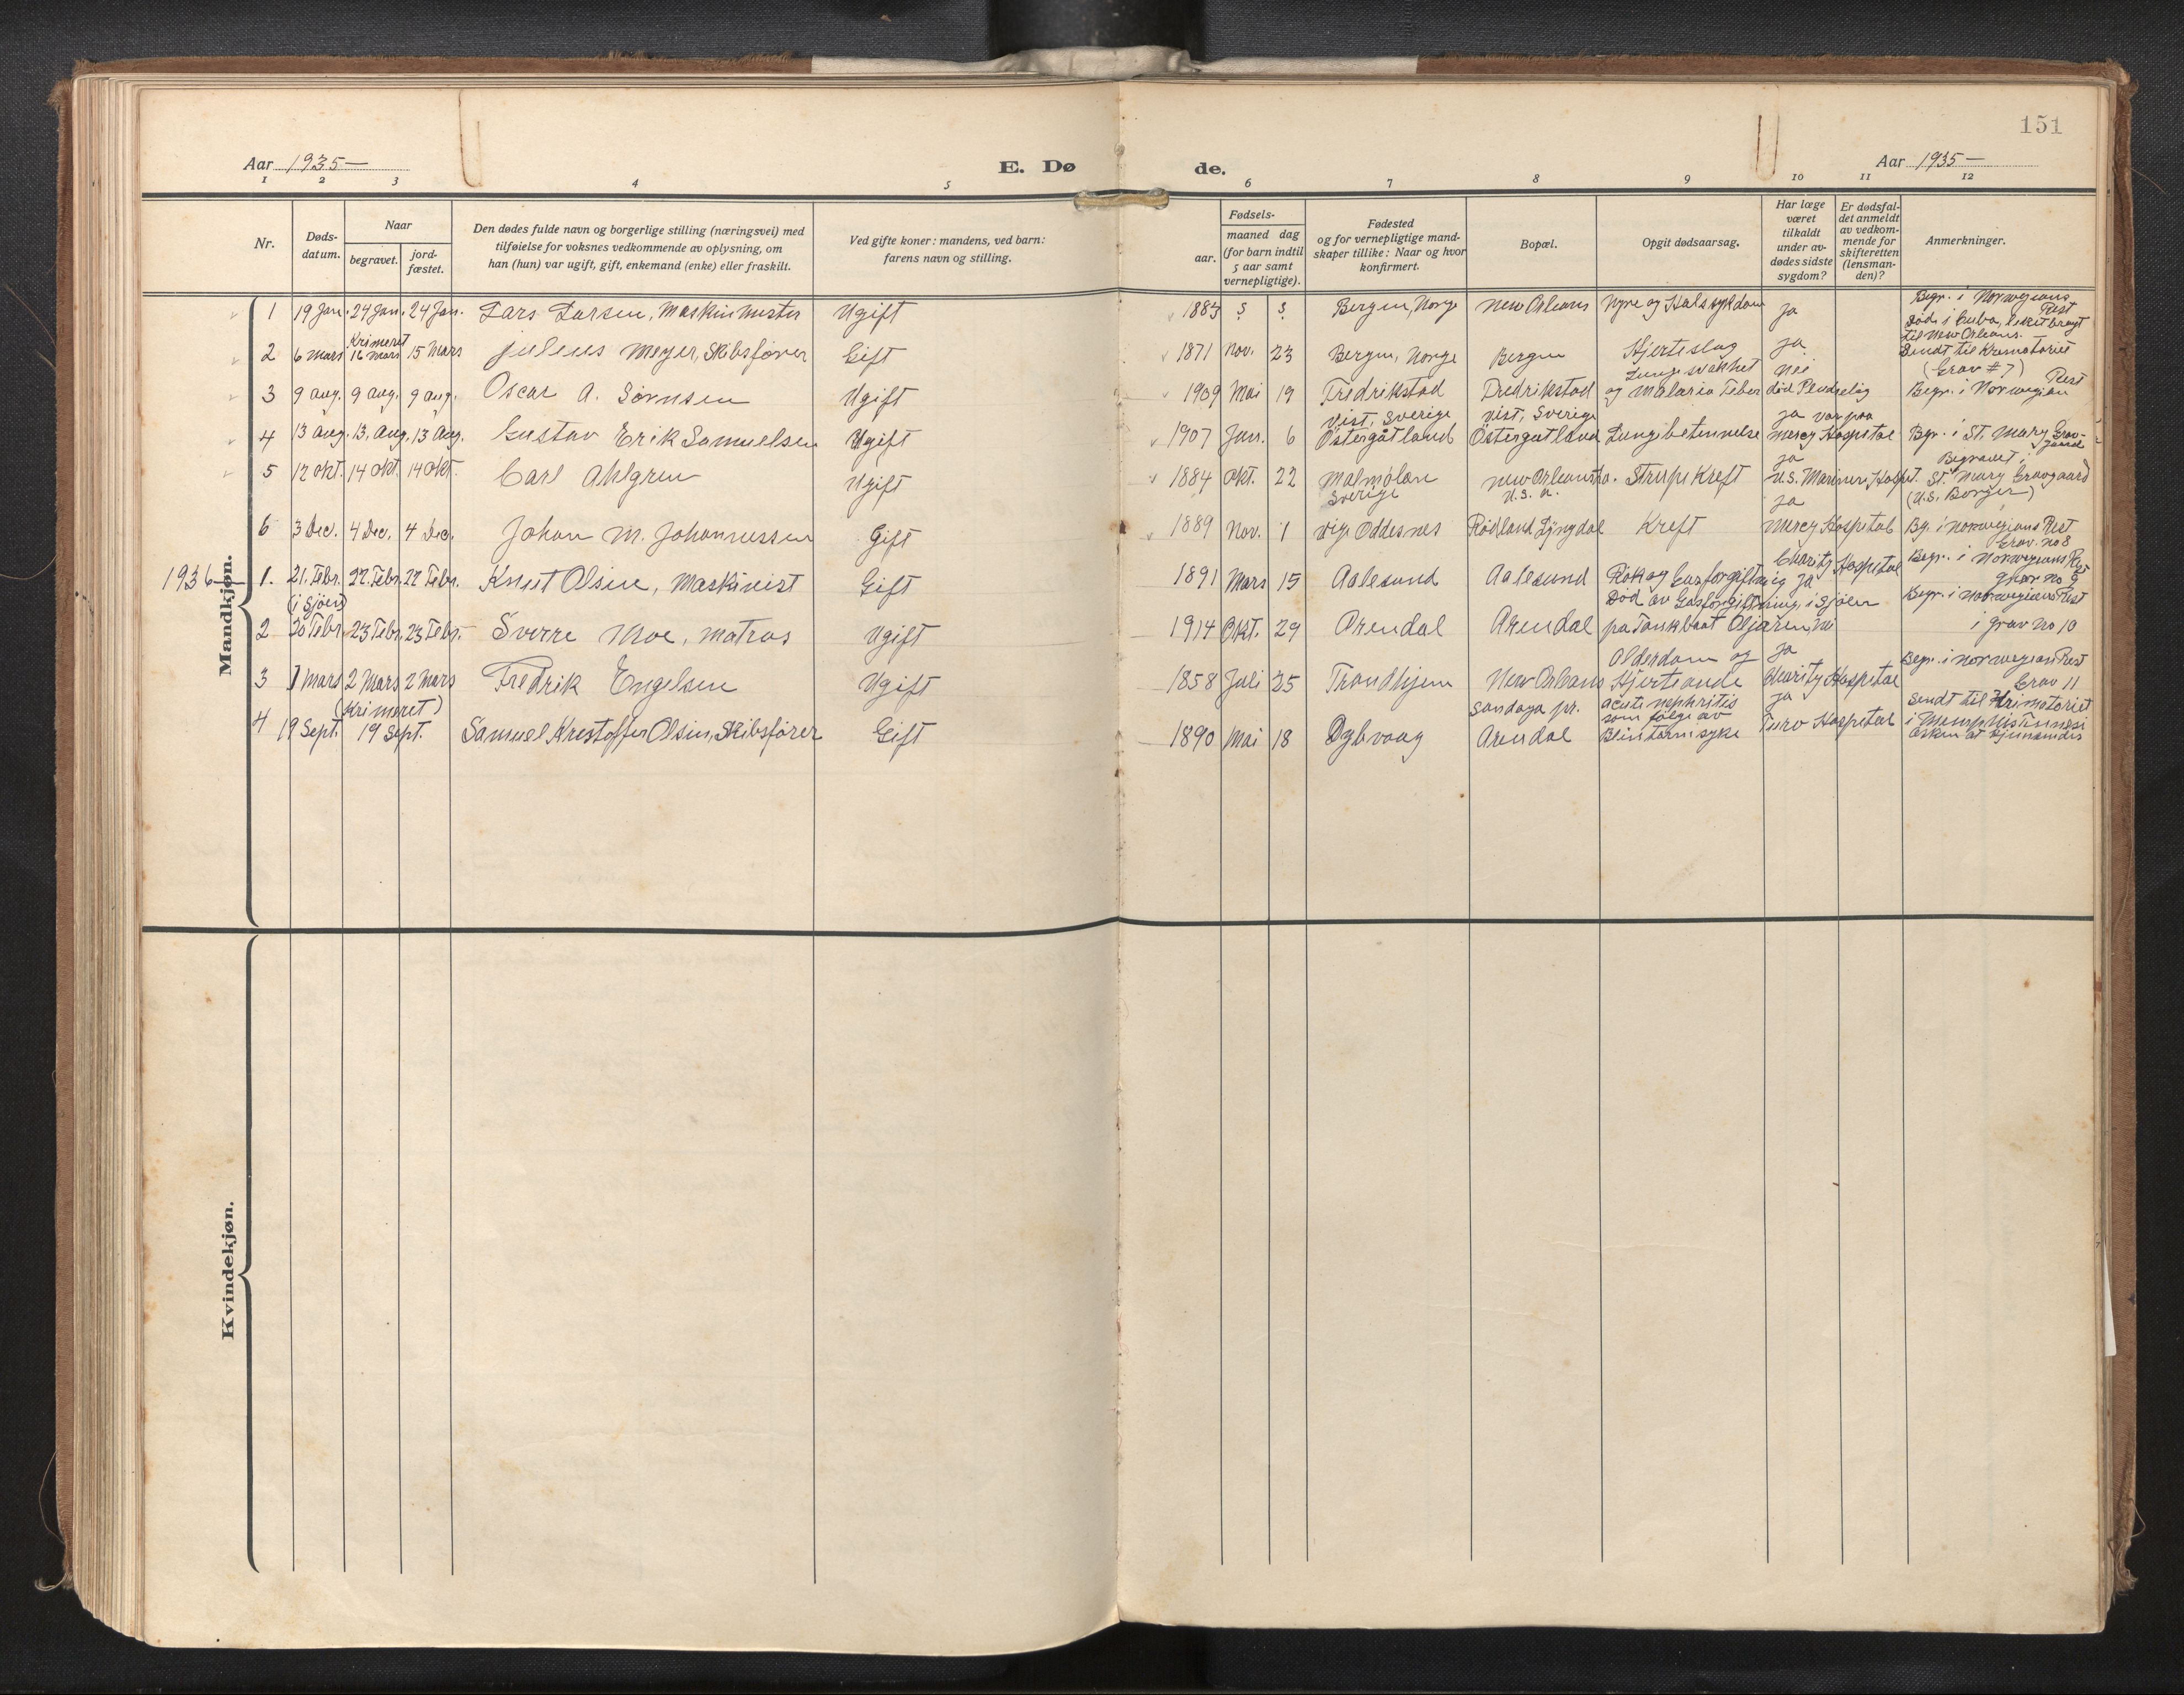 151
Aar 1935— E. Dø de. Aar 1935—
1 2 3 4 5 6 7 8 9 10 11 12
Nr.
Døds-
datum.
Naar
begravet.
jord-
fæstet.
Den dødes fulde navn og borgerlige stilling (næringsvei) med
tilføielse for voksnes vedkommende av oplysning, om
han (hun) var ugift, gift, enkemand (enke) eller fraskilt.
Ved gifte koner: mandens, ved barn:
farens navn og stilling.
Fødsels-
aar.
maaned dag
(for barn indtil
5 aar samt
vernepligtige).
Fødested
og for vernepligtige mand-
skaper tillike: Naar og hvor
konfirmert.
Bopæl.
Opgit dødsaarsag.
Har læge
været
tilkaldt
under av-
dødes sidste
sygdom?
Er dødsfal-
det anmeldt
av vedkom-
mende for
skifteretten
(lensman-
den)?
Anmerkninger.
Mandkjøn.
1 19 Jan. 24 Jan. 24 Jan. Lars Larsen, Maskinmester Ugift 1883 Bergen, Norge New Orleans Nyre og Halssykdom Ja
Begr. i Norwegians
Rest
2 6 Mars
Krimeret
16 Mars 15 Mars Julius Meyer, Skibsfører Gift 1871 Nov. 23 Bergen, Norge Bergen Hjerteslag Ja
Død i Cuba, liket bragt
til New Orleans.
Sendt til Krematoriet
3 9 Aug. 9 Aug. 9 Aug. Oscar A. Sørnsen Ugift 1909 Mai 19 Fredrikstad Fredrikstad
Lunge svakhet
og Malaria Feber
Nei
død Pludselig
(Grav #7)
Begr. i Norwegian Rest
4 13 Aug. 13. Aug. 13 Aug. Gustav Erik Samuelsen Ugift 1907 Jan. 6
Vist, Sverige
Östergåtland
Vist, Sverige
Östergatland Lungebetennelse
Ja var paa
Mercy Hospital
Begr. i St. Mary Grav-
gaard
5 12 Okt. 14 Okt. 14 Okt. Carl Ahlgren Ugift 1884 Okt. 22
Malmølæn
Sverige
New Orleans La.
U.S.A.
Strupe Kreft
Ja
U.S. Marines Hospt.
Begravet i
St. Mary Gravgaard
(U.S. Borger)
6 3 Dec. 4 Dec. 4 Dec. Johan M. Johannessen Gift 1889 Nov. 1 Vig. Oddesnes Rødland Lyngdal Kreft
Ja
Mercy Hospital
Bg. i Norwegians Rest
Grav. no 8
1936— 1. 21. Febr. 22. Febr. 22 Febr. Knut Olsen, Maskinist Gift 1891 Mars 15 Aalesund Aalesund Røk og Gasforgiftning
Charity Hospital
Ja
Begr. i Norwegians Rest
grav no 9
2
(i Sjøen)
20 Febr. 23 Febr. 23 Febr. Sverre Moe, Matros Ugift 1914 Okt. 29 Arendal Arendal
Død av Gasforgiftning, i Sjøen
pa Tankbaat Oljaren, nei
Begr. i Norwegians Rest
i grav no 10
3 1 Mars 2 Mars 2 Mars Fredrik Engelsen Ugift 1858 Juli 25 Trondhjem New Orleans
Alderdom og
Hjerteonde
Ja
Charity Hospital
Begr. i Norwegian Rest
Grav 11
4 19 Sept.
(Krimeret)
19 Sept. Samuel Krestoffer Olsen, Skibsfører Gift 1890 Mai 18 Dybvaag
Sandøya pr.
Arendal
acute nephritis
som følge av
Blintarmsyke
Ja
Turo Hospital
Sendt til Krimatoriet
i Memphis Tennesi
Kvindekjøn.